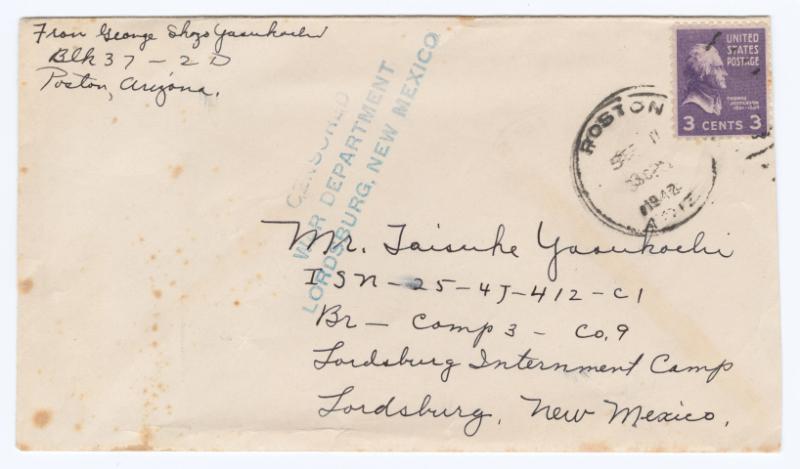 From George Shozo Yasukochi
Blk 37 - 2 D
Poston, Arizona.
CENSORED
WAR DEPARTMENT
LORDSBURG, NEW MEXICO
POSTON
1942
ARIZ
UNITED
STATES
POSTAGE
THOMAS
JEFFERSON
3 CENTS 3
Mr. Taisuke Yasukochi
ISN-25-4J-412-C1
Br- Camp 3 - Co. 9
Lordsburg Internment Camp
Lordsburg, New Mexico.